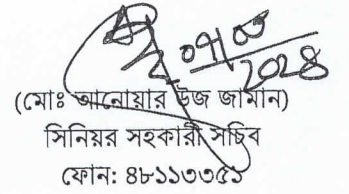 ০৭/০৩
2024
(মোঃ আনোয়ার উজ জামান)
সিনিয়র সহকারী সচিব
ফোন: ৪৮১১৩৩৫১